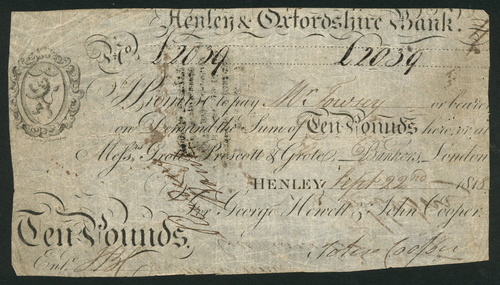 Henley & Oxfordshire Bank.
No. L2039 L2039
I Promise to pay Mr. or bearer
on Demand the Sum of Ten Pounds here, or at
Messrs. Grote Prescott & Grote, Bankers, London
HENLEY, Sept 22nd 1818
George Hewett & John Cooper.
Ten Pounds,
John Cooper
Entd.